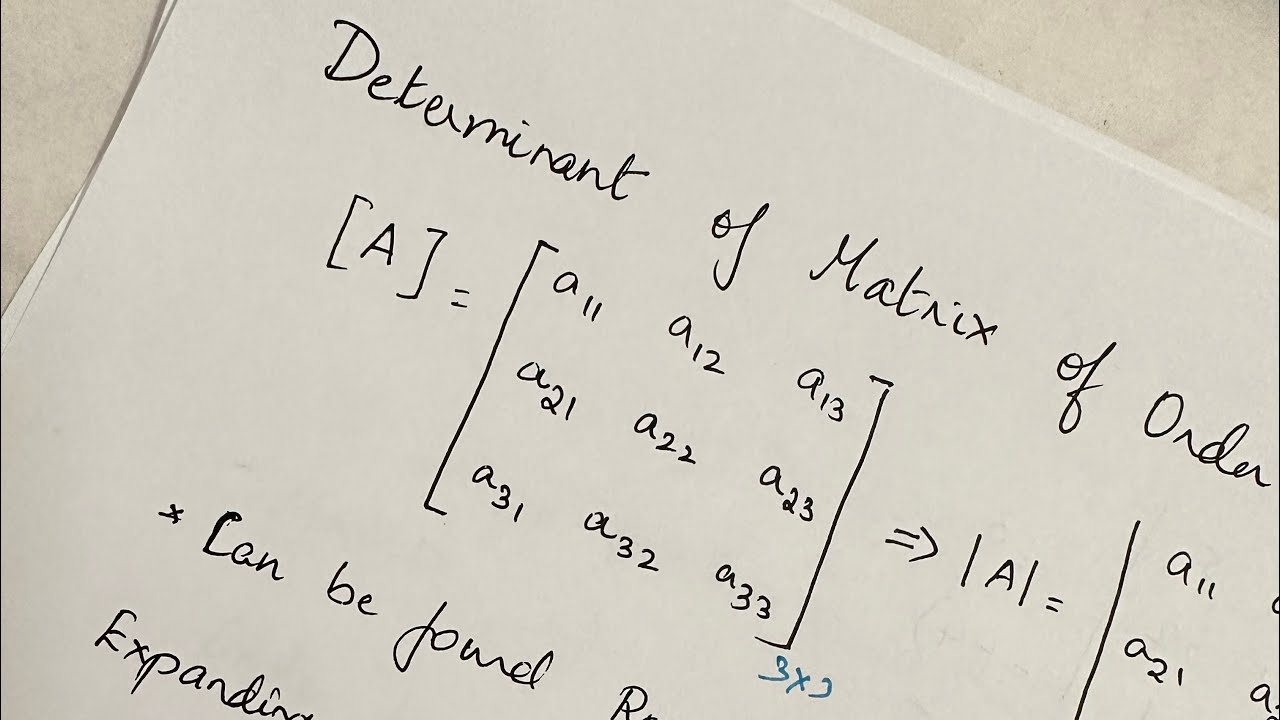 Determinant of Matrix of Order
[A] = [ a11 a12 a13
a21 a22 a23
a31 a32 a33 ] 3x3 => |A| = | a11
a21
* Can be found
Expanding